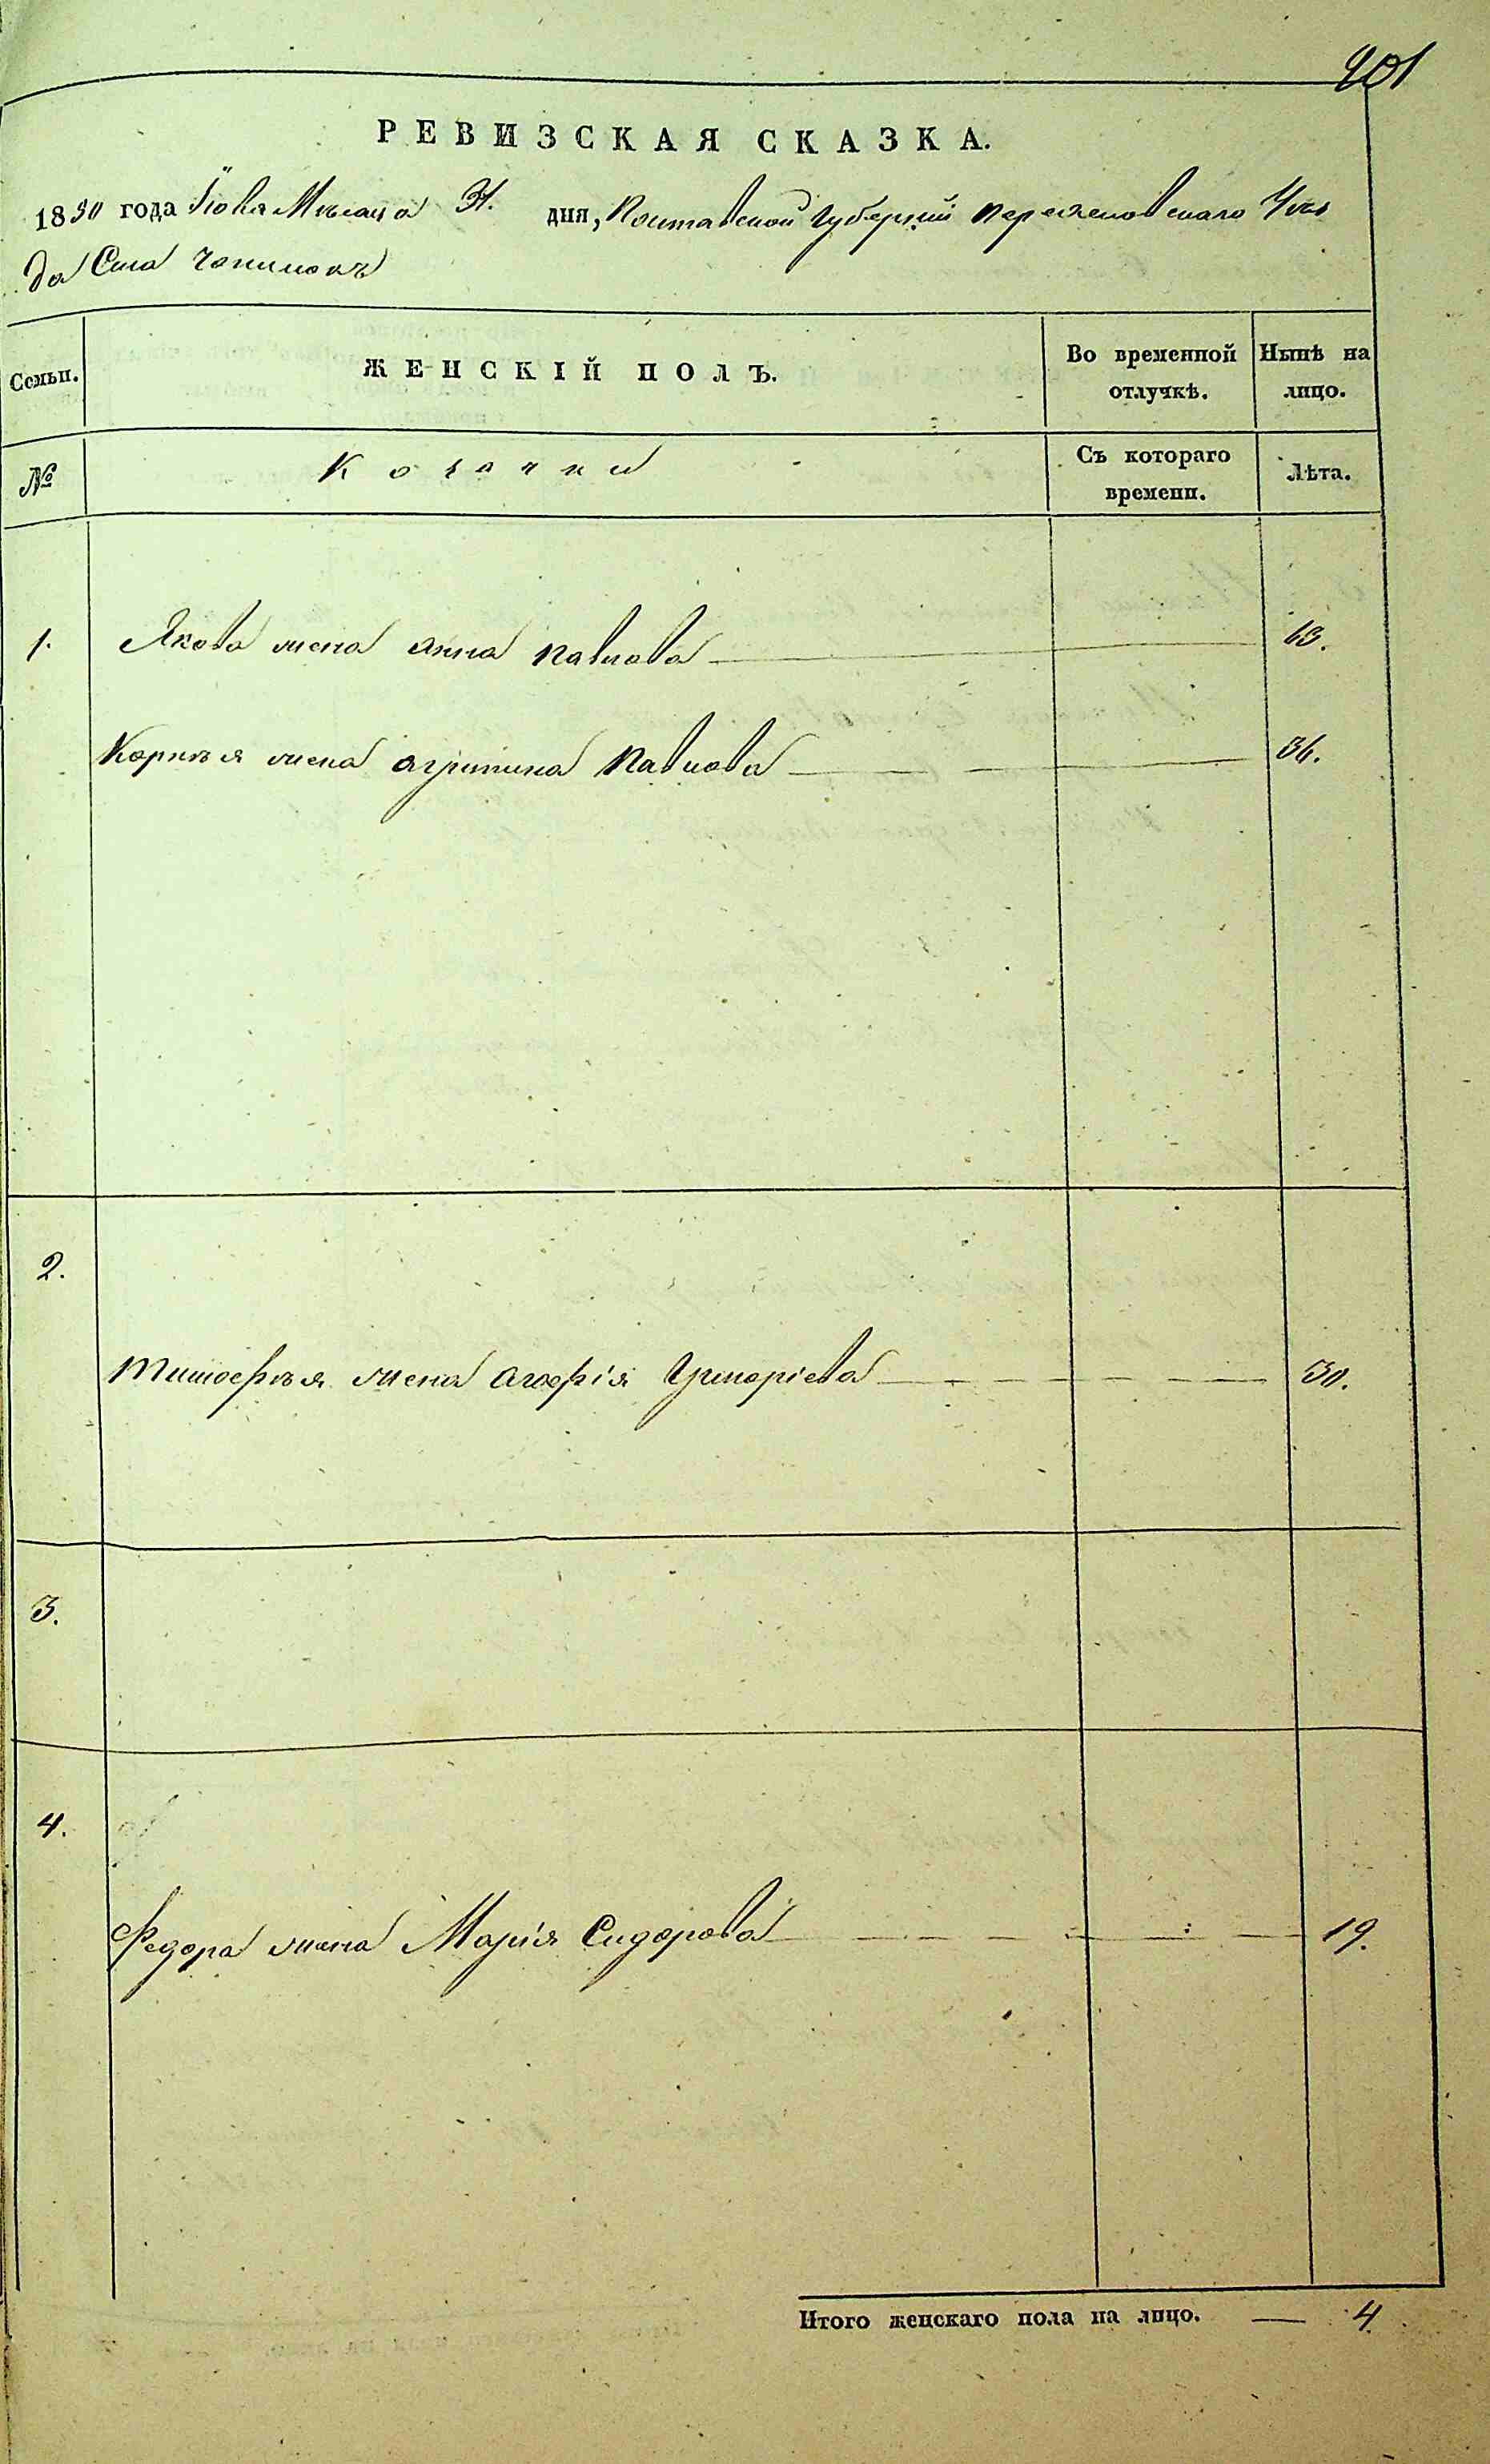 401
РЕВИЗСКАЯ СКАЗКА.
1850 года Іюля Мѣсяца 31. дня, Полтавской Губерніи Переяславскаго Уѣз
да Села
Семьи. ЖЕНСКІЙ ПОЛЪ. Во временной отлучкѣ. Нынѣ на лицо.
№ Козачки Съ котораго времени. Лѣта.
1. Якова жена Анна Павлова 63.
Корнѣя жена Агрипина Павлова 36.
2.
Тимофѣя жена Агафія Григоріева 30.
3.
4.
Федора жена Марія Сидорова 19.
Итого женскаго пола на лицо. — 4.